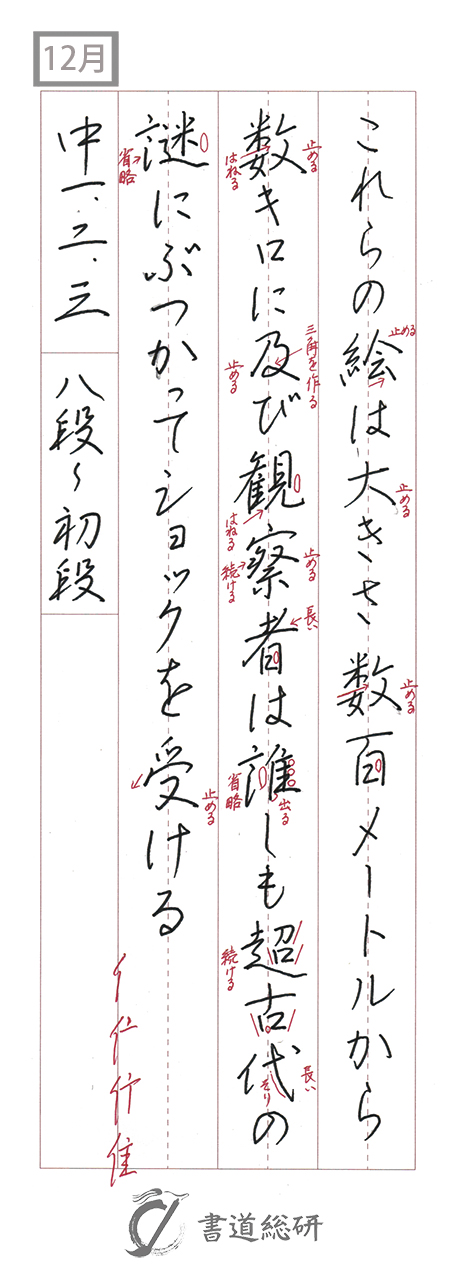 12月
これらの絵は大きさ数百メートルから
止める
止める
止める
数キロに及び観察者は誰しも超古代の
止める
はねる
三角を作る
止める
はねる
止める
続ける
長い
省略
出る
続ける
長い
そり
謎にぶつかってショックを受ける
省略
止める
中一、二、三
八段〜初段
書道総研